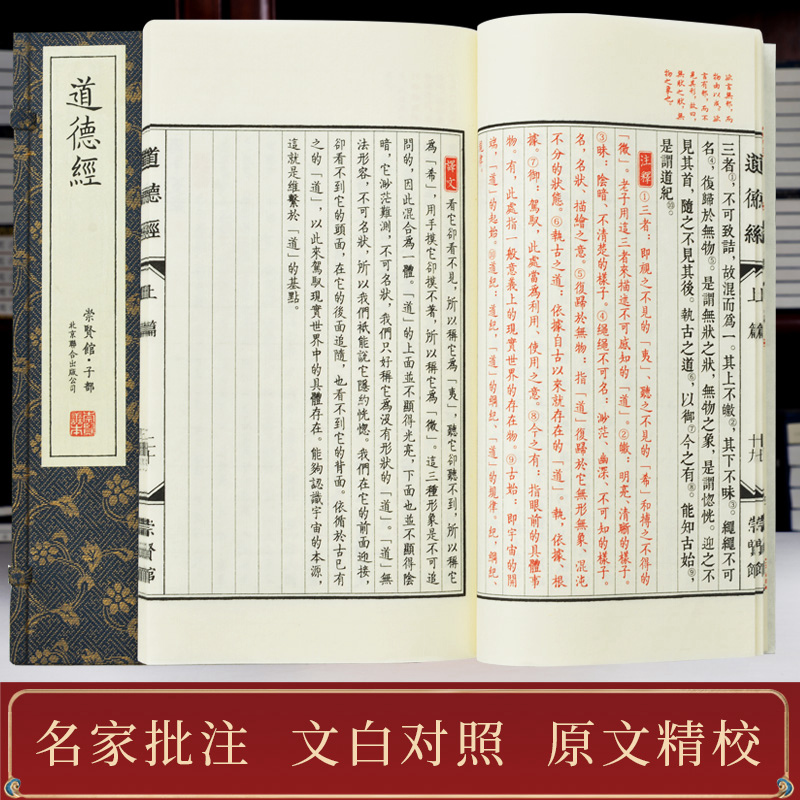 道德經
崇賢館·子部
北京聯合出版公司
欲言無邪,而
物由以成。欲
言有邪,而不
見其形,故曰,
無狀之狀,無
物之象也。
道德經
上篇
崇賢館
三者①,不可致詰,故混而爲一。其上不皦②,其下不昧③。繩繩不可
名④,復歸於無物⑤。是謂無狀之狀,無物之象,是謂惚恍。迎之不
見其首,隨之不見其後。執古之道⑥,以御⑦今之有⑧。能知古始⑨,
是謂道紀⑩。
注釋 ①三者:即視之不見的「夷」、聽之不見的「希」和搏之不得的
「微」。老子用這三者來描述不可感知的「道」。②皦:明亮、清晰的樣子。
③昧:陰暗、不清楚的樣子。④繩繩不可名:渺茫、幽深、不可知的樣子。
名,名狀、描繪之意。⑤復歸於無物:指「道」復歸於它無形無象、混沌
不分的狀態。⑥執古之道:依據自古以來就存在的「道」。執,依據、根
據。⑦御:駕馭,此處當爲利用、使用之意。⑧今之有:指眼前的具體事
物。有,此處指一般意義上的現實世界的存在物。⑨古始:即宇宙的開
端,「道」的起始。⑩道紀:道紀,「道」的綱紀、「道」的規律。紀,綱紀、
規律。
譯文 看它卻看不見,所以稱它爲「夷」,聽它卻聽不到,所以稱它
爲「希」,用手摸它卻摸不著,所以稱它爲「微」。這三種形象是不可追
問的,因此混合爲一體。「道」的上面並不顯得光亮,下面也並不顯得陰
暗,它渺茫難測,不可名狀,我們只好稱它爲沒有形狀的「道」。「道」無
法形容,不可名狀,所以我們祇能說它隱約恍惚。我們在它的前面迎接,
卻看不到它的頭面,在它的後面追隨,也看不到它的背面。依循於古已有
之的「道」,以此來駕馭現實世界中的具體存在。能夠認識宇宙的本源,
這就是維繫於「道」的基點。
道德經
上篇
崇賢館
名家批注 文白对照 原文精校